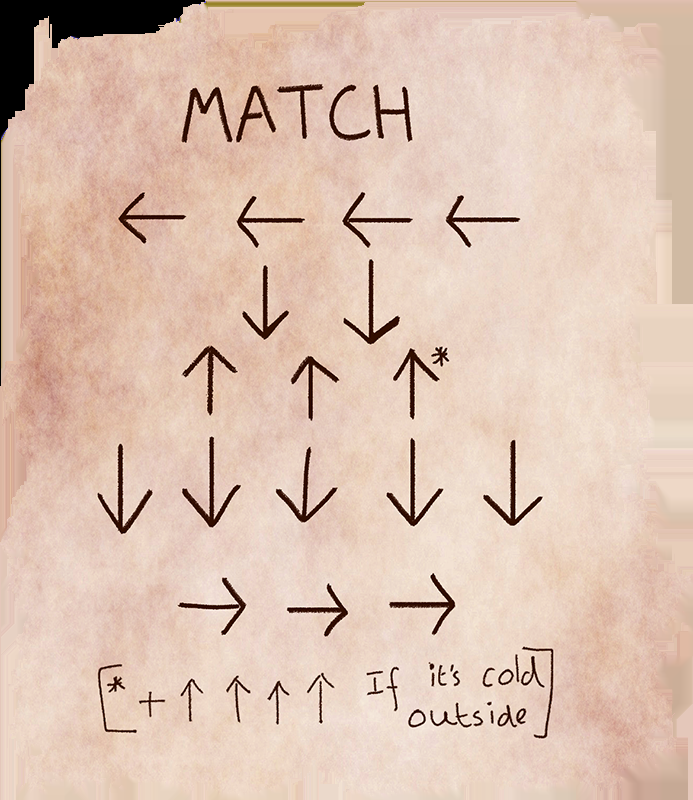 MATCH
← ← ← ←
↓ ↓
↑ ↑ ↑*
↓ ↓ ↓ ↓ ↓
→ → →
[* + ↑ ↑ ↑ ↑ If it's cold
outside]